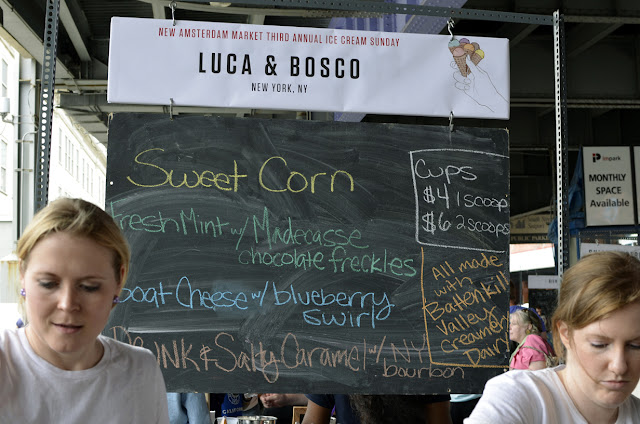 NEW AMSTERDAM MARKET THIRD ANNUAL ICE CREAM SUNDAY
LUCA & BOSCO
NEW YORK, NY
Sweet Corn
Fresh Mint w/ Madecasse
chocolate freckles
Goat Cheese w/ blueberry
swirl
DRUNK & Salty Caramel w/ NY
bourbon
Cups
$4 1 scoop
$6 2 scoops
All made
with
Battenkill
Valley
Creamery
Dairy
impark
MONTHLY
SPACE
Available
PUBLIC PARK